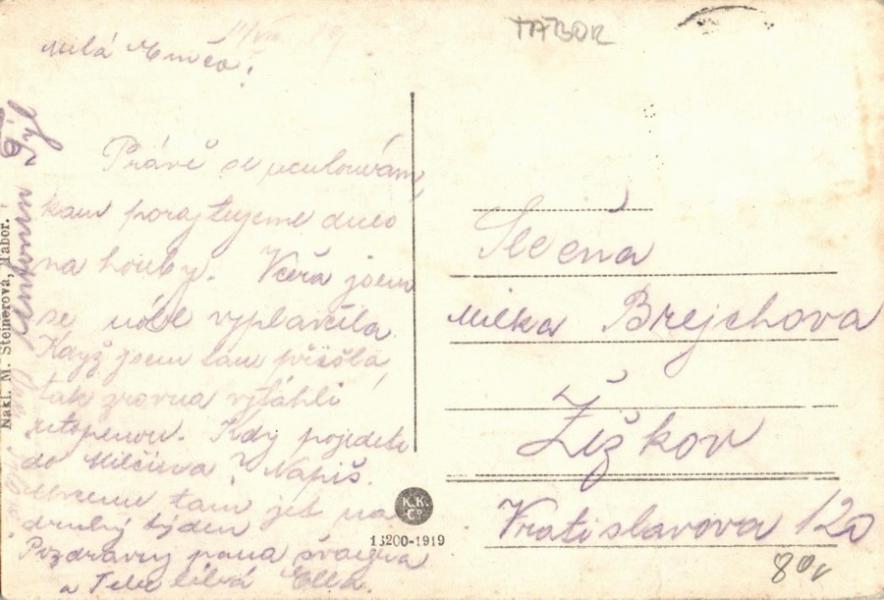 TÁBOR
Milá
Právě se
kam dnes
na houby. Včera jsem
se vyplavila
Když jsem tam přišla,
tak zrovna vytáhli
utopenou. Kdy pojedete
do Milčína? Napiš.
tam jet na
druhý týden
Pozdravuj pana švagra
a Tebe líbá Ella.
Antonín Týl
Nakl. M. Steinerová, Tábor.
K.K.
Co
13200-1919
Slečna
Milka Brejchova
Žižkov
Vratislavova 12